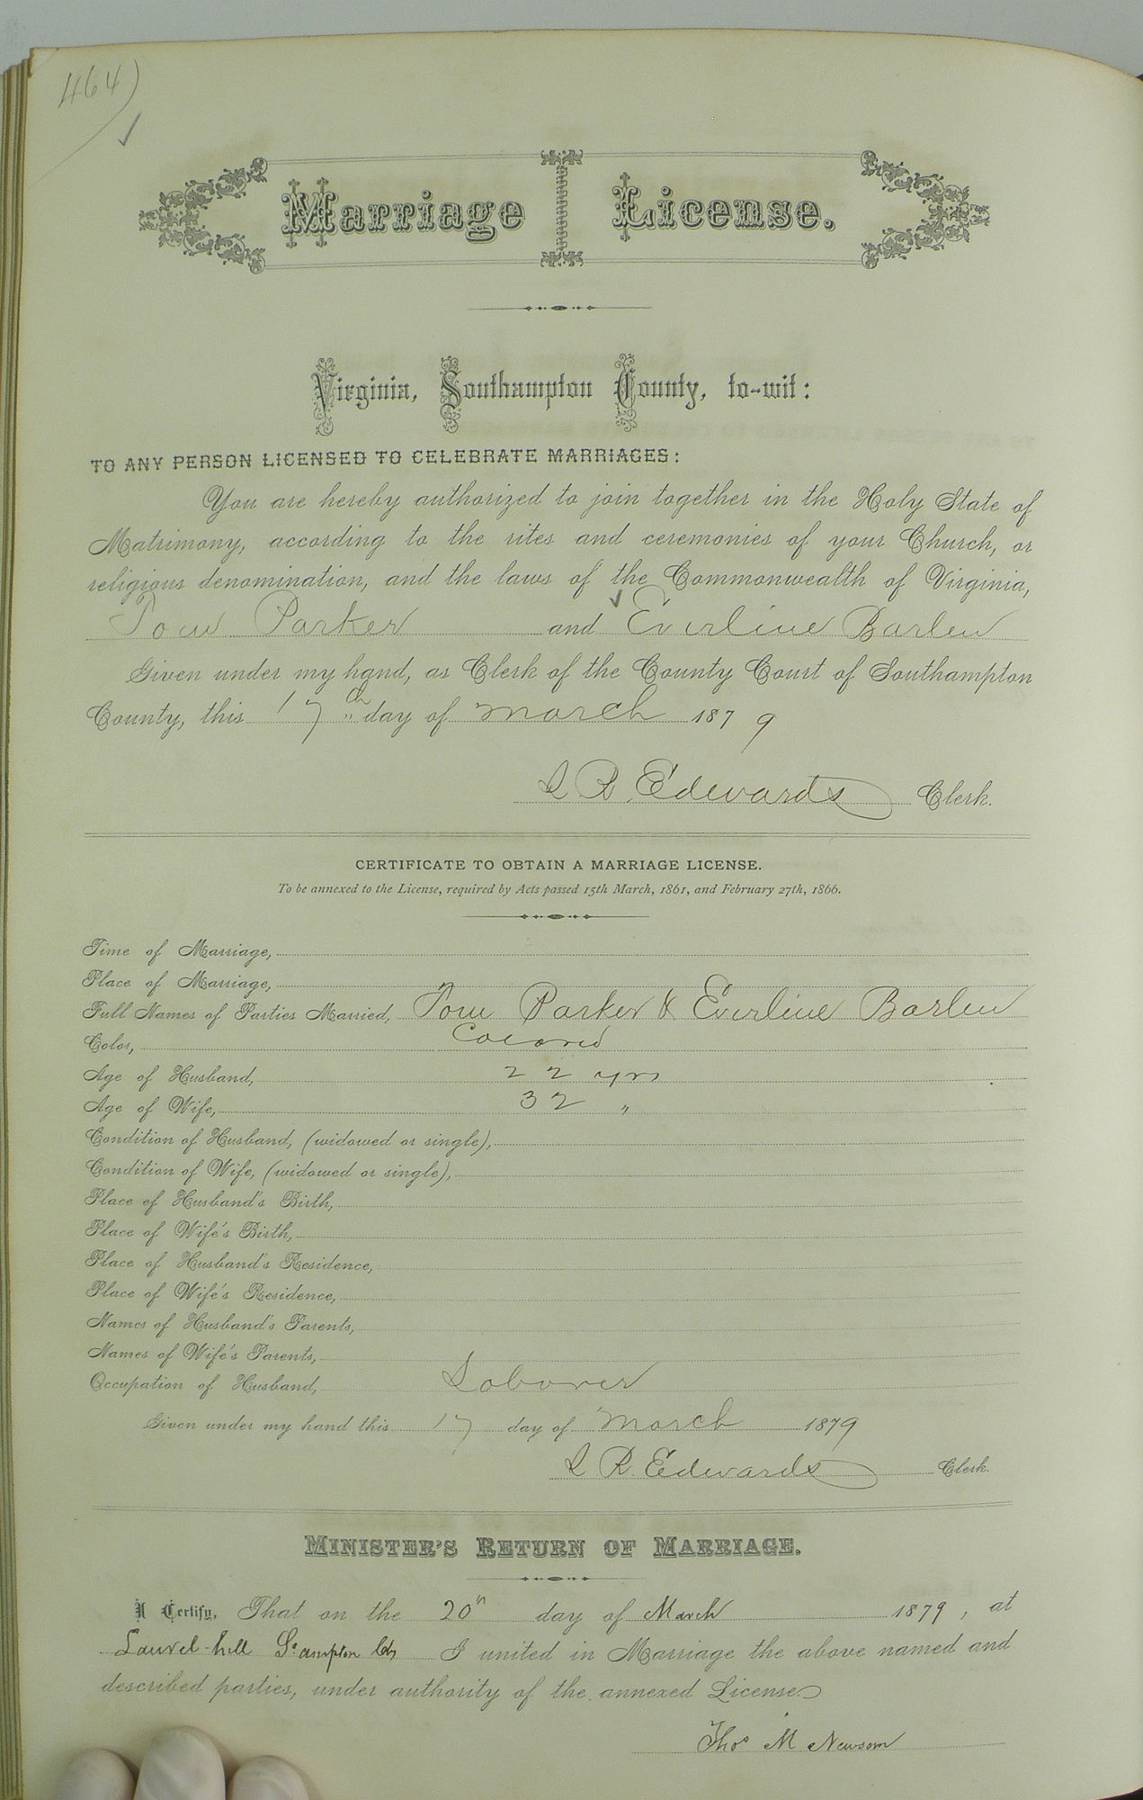 464)
Marriage License.
Virginia, Southampton County, to-wit:
TO ANY PERSON LICENSED TO CELEBRATE MARRIAGES:
You are hereby authorized to join together in the Holy State of
Matrimony, according to the rites and ceremonies of your Church, or
religious denomination, and the laws of the Commonwealth of Virginia,
Tom Parker and Everline Barlew
Given under my hand, as Clerk of the County Court of Southampton
County, this 17th day of March 1879
L R. Edwards Clerk.
CERTIFICATE TO OBTAIN A MARRIAGE LICENSE.
To be annexed to the License, required by Acts passed 15th March, 1861, and February 27th, 1866.
Time of Marriage,
Place of Marriage,
Full Names of Parties Married, Tom Parker & Everline Barlew
Color, Colored
Age of Husband, 22 yrs
Age of Wife, 32 "
Condition of Husband, (widowed or single),
Condition of Wife, (widowed or single),
Place of Husband's Birth,
Place of Wife's Birth,
Place of Husband's Residence,
Place of Wife's Residence,
Names of Husband's Parents,
Names of Wife's Parents,
Occupation of Husband, Laborer
Given under my hand this 17 day of March 1879
L R. Edwards Clerk.
MINISTER'S RETURN OF MARRIAGE.
I Certify, That on the 20th day of March 1879, at
Laurel-hill So ampton Co I united in Marriage the above named and
described parties, under authority of the annexed License
Thos M Newsom